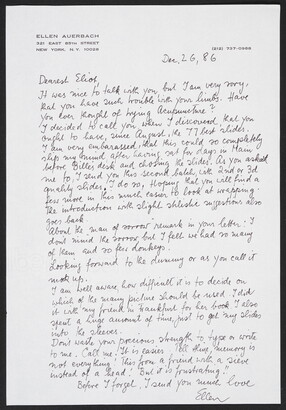 ELLEN AUERBACH
321 EAST 85TH STREET
NEW YORK, N.Y. 10028
Dec, 26, 86
Dearest Eliot,
It was nice to talk with you but I am very sorry,
that you have such trouble with your limbs. Have
you ever thought of trying Acupuncture?
I decided to call you when I discovered, that you
ought to have, since August, the 77 best slides.
I am very embarrassed that this could so completely
slip my mind after having sat for days in Maine
before Eliots desk and chosing the slides. As you asked
me to, I send you this second batch, with 2nd or 3d
quality slides. I do so, hoping that you will find a
few more in this much easier to look at wrapping.
The introduction with slight stilistic suggestions also
goes back.
About the man of sorrow remark in your letter: I
dont mind the sorrow but I fell we had so many
of them and so few donkeys.
Looking forward to the dummy or as you call it
mock up.
I am well aware how difficult it is to decide on
which of the many pictures should be used. I did
it with my friend in Frankfurt for her book. I also
spent a huge amount of time, just to get my slides
into the sleeves.
Dont waste your precious strength to type or write
to me. Call me. It is easier. All this, memory is
not everything! This from a friend with a sieve
instead of a head. But it is frustrating!!
Before I forget, I send you much love
Ellen